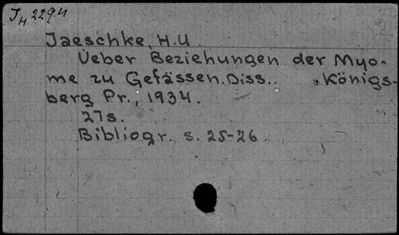 J H 2294
Jaeschke, H.U.
Ueber Beziehungen der Myo-
me zu Gefässen. Diss.. Königs-
berg Pr., 1934.
27s.
Bibliogr. s. 25-26.